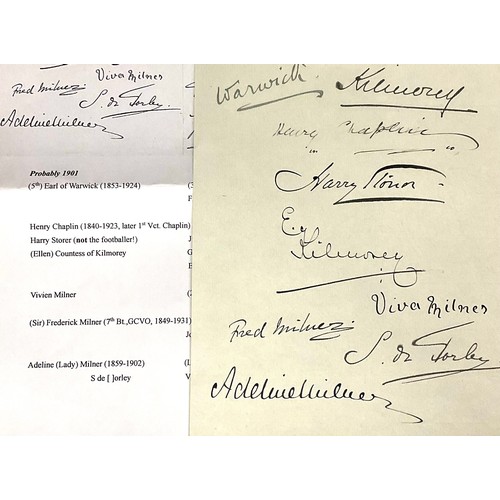 Viva Milner
Fred Milner
Adeline Milner
Probably 1901
(5th) Earl of Warwick (1853-1924)
Henry Chaplin (1840-1923, later 1st Vct. Chaplin)
Harry Storer (not the footballer!)
(Ellen) Countess of Kilmorey
Vivien Milner
(Sir) Frederick Milner (7th Bt.,GCVO, 1849-1931)
Adeline (Lady) Milner (1859-1902)
S de [ ]orley
Warwick. Kilmorey
Henry Chaplin
Harry Stonor
E. Kilmorey
Viva Milner
Fred Milner
Adeline Milner